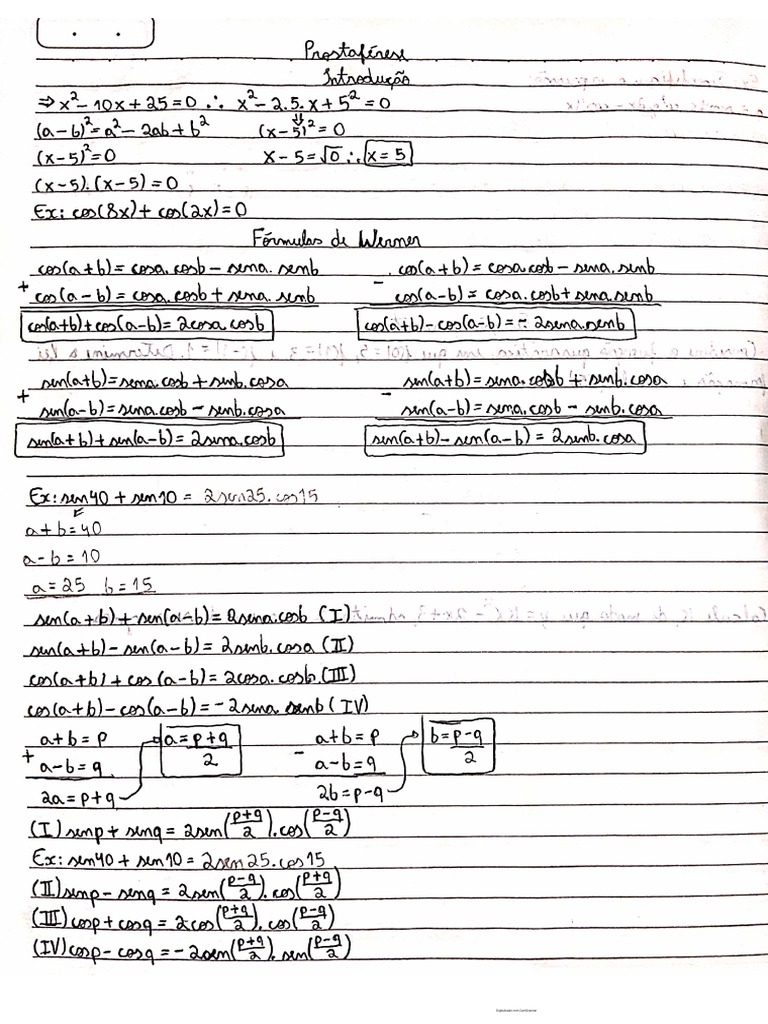 Prostaférese
Introdução
⇒ x² - 10x + 25 = 0 ∴ x² - 2.5.x + 5² = 0
(a - b)² = a² - 2ab + b² (x - 5)² = 0
(x - 5)² = 0 x - 5 = √0 ∴ x = 5
(x - 5).(x - 5) = 0
Ex: cos(8x) + cos(2x) = 0
Fórmulas de Werner
cos(a+b) = cosa.cosb - sena.senb cos(a+b) = cosa.cosb - sena.senb
+ cos(a-b) = cosa.cosb + sena.senb - cos(a-b) = cosa.cosb + sena.senb
cos(a+b) + cos(a-b) = 2cosa.cosb cos(a+b) - cos(a-b) = -2sena.senb
sen(a+b) = sena.cosb + senb.cosa sen(a+b) = sena.cosb + senb.cosa
+ sen(a-b) = sena.cosb - senb.cosa - sen(a-b) = sena.cosb - senb.cosa
sen(a+b) + sen(a-b) = 2sena.cosb sen(a+b) - sen(a-b) = 2senb.cosa
Ex: sen40 + sen10 = 2sen25.cos15
a + b = 40
a - b = 10
a = 25 b = 15
sen(a+b) + sen(a-b) = 2sena.cosb (I)
sen(a+b) - sen(a-b) = 2senb.cosa (II)
cos(a+b) + cos(a-b) = 2cosa.cosb (III)
cos(a+b) - cos(a-b) = -2sena.senb (IV)
a + b = p a = (p+q)/2 a + b = p b = (p-q)/2
+ a - b = q - a - b = q
2a = p + q 2b = p - q
(I) senp + senq = 2sen((p+q)/2).cos((p-q)/2)
Ex: sen40 + sen10 = 2sen25.cos15
(II) senp - senq = 2sen((p-q)/2).cos((p+q)/2)
(III) cosp + cosq = 2cos((p+q)/2).cos((p-q)/2)
(IV) cosp - cosq = -2sen((p+q)/2).sen((p-q)/2)